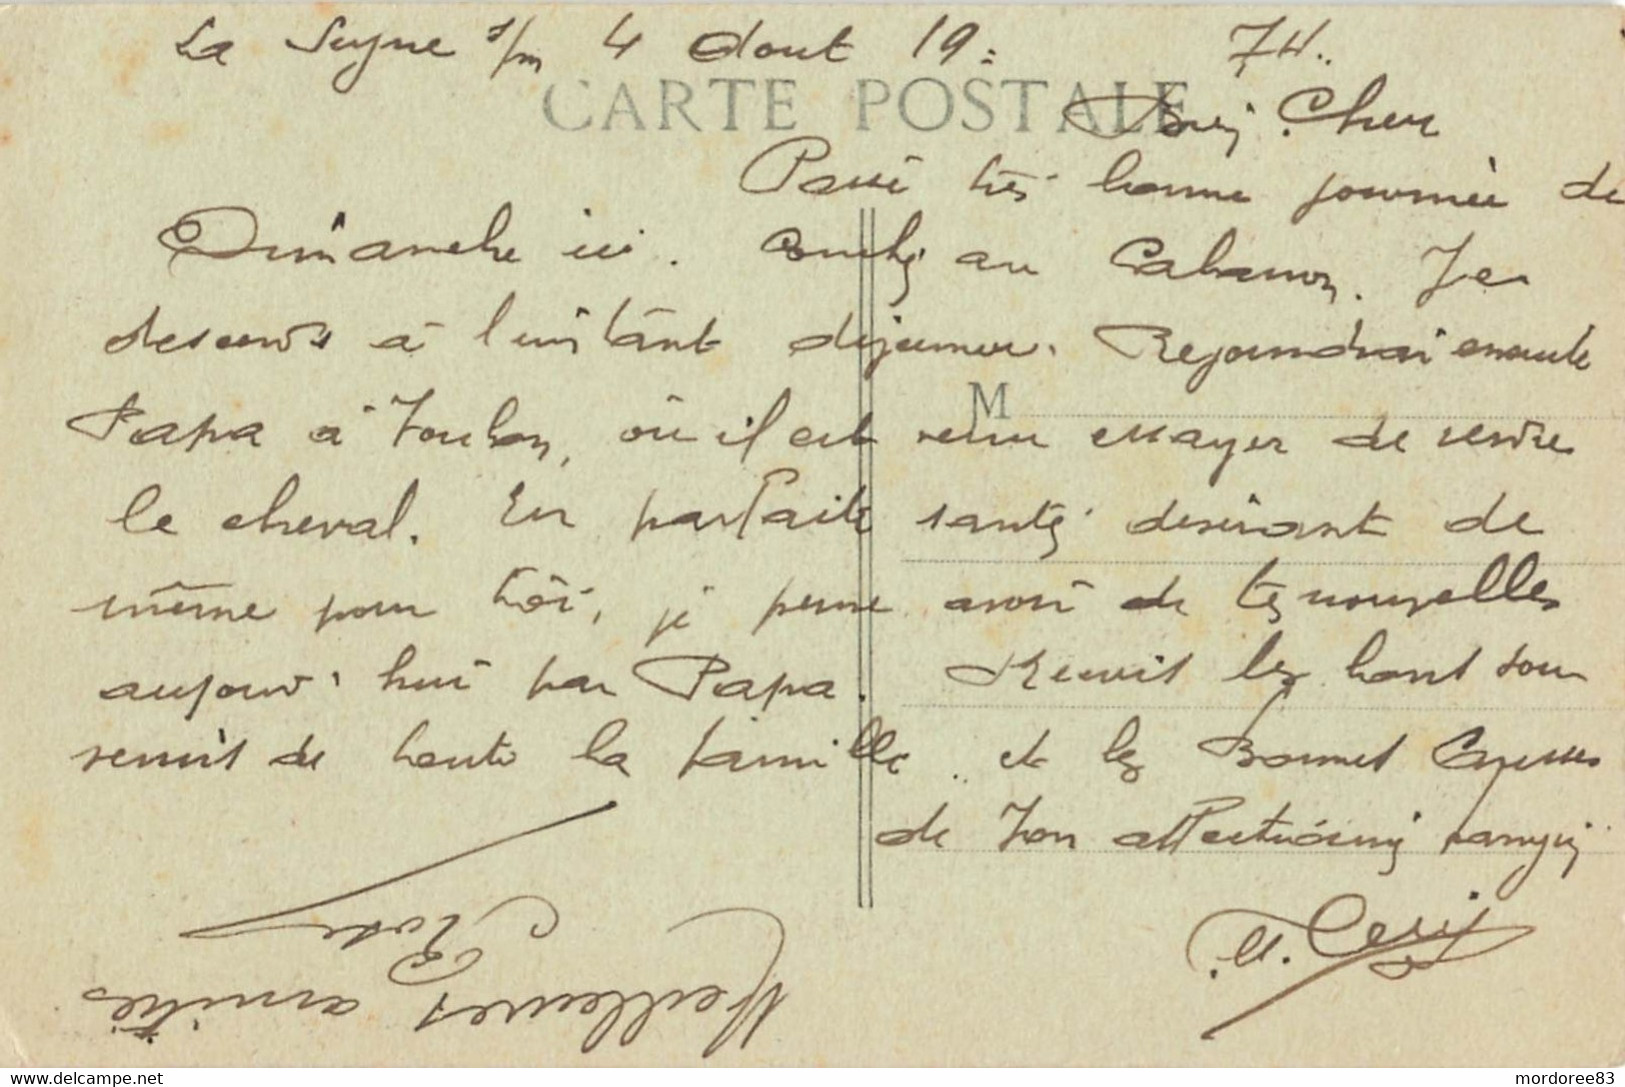 La Seyne s/m 4 Aout 19: 7H..
CARTE POSTALE
Bien Cher
Passé très bonne journée de
Dimanche ici. Couché au Cabanon. Je
descends à l'instant déjeuner. Rejoindrai ensuite
M
Papa à Toulon, où il est venu essayer de vendre
le cheval. En parfaite santé désirant de
même pour toi, je pense avoir de tes nouvelles
aujourd'hui par Papa. Reçois les
de toute la famille.. et les
de Ton affectionné
Meilleures amitiés
mordoree83
www.delcampe.net